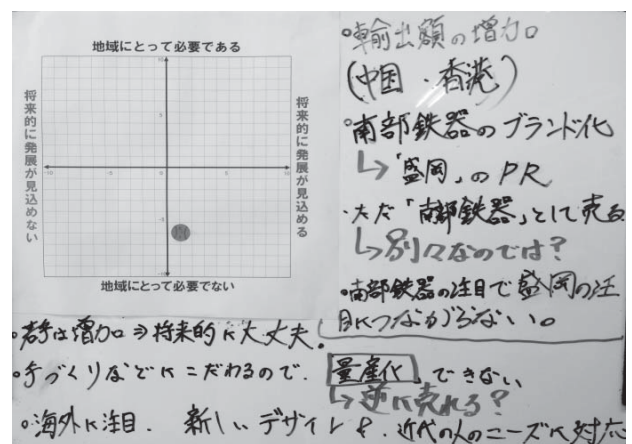 地域にとって必要である
将来的に発展が見込めない
将来的に発展が見込める
地域にとって必要でない
-10
10
10
5
-5
5
-5
-10
○輸出額の増加。
(中国・香港)
○南部鉄器のブランド化
↳「盛岡」のPR
・ただ「南部鉄器」として売る
↳別々なのでは?
○南部鉄器の注目で盛岡の注
目につながらない。
○若手は増加⇒将来的に大丈夫。
○手づくりなどにこだわるので、量産化できない
↳逆に売れる?
○海外に注目、新しいデザインを、近代の人のニーズに対応